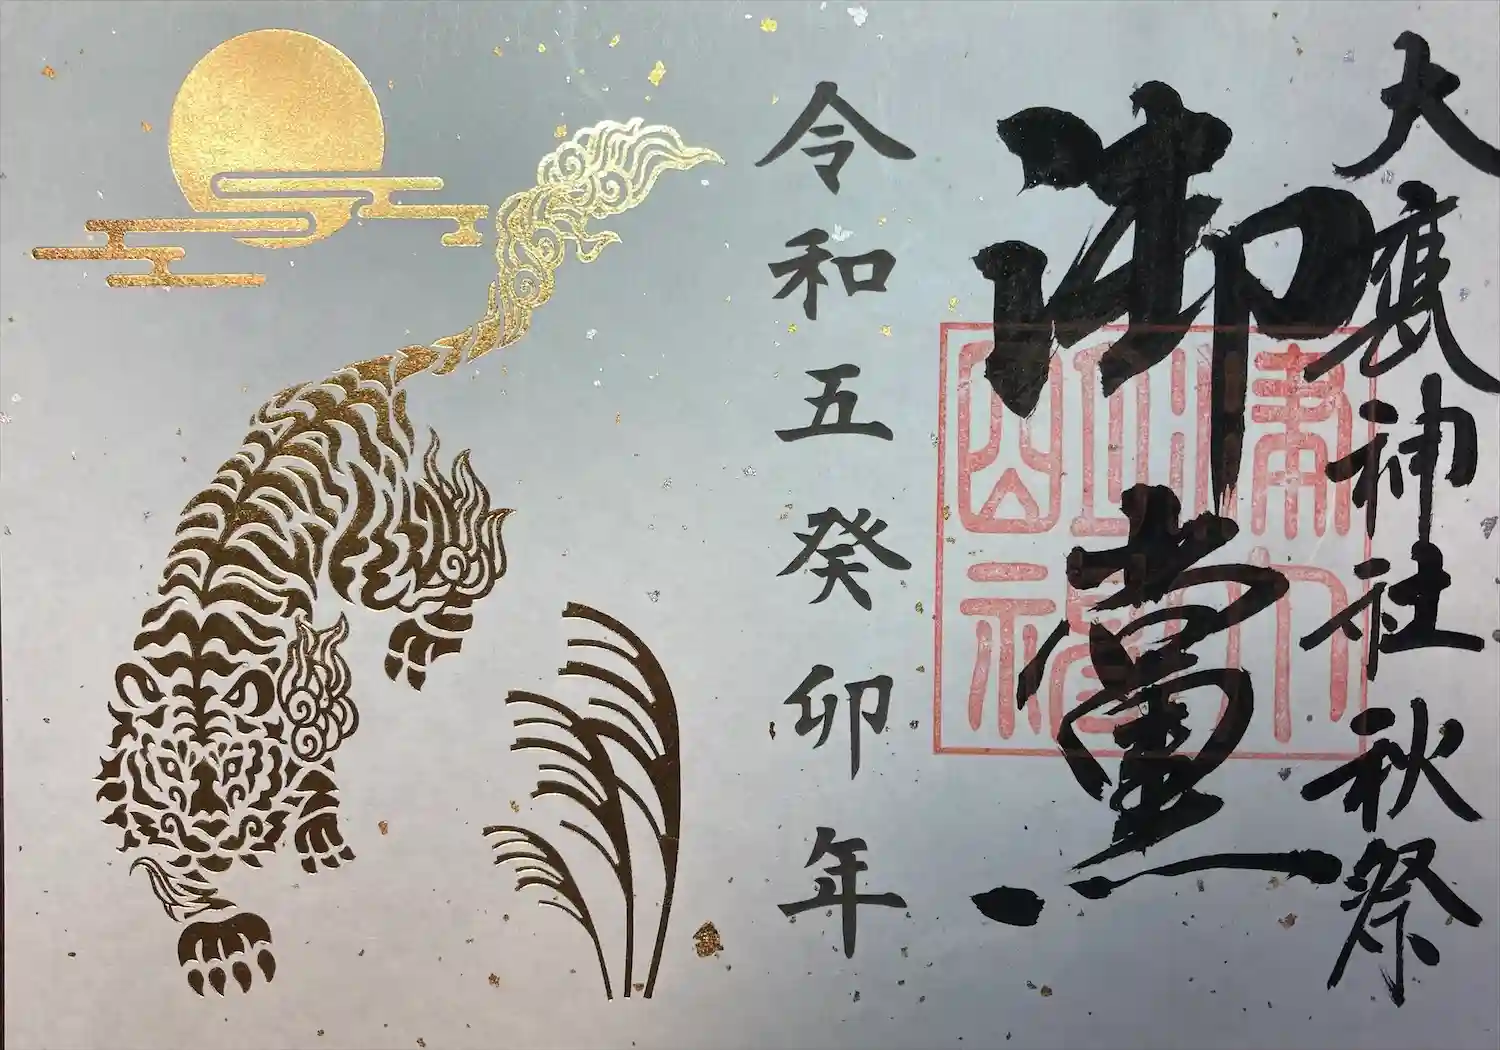 大神社秋祭
御黨
令和五癸卯年